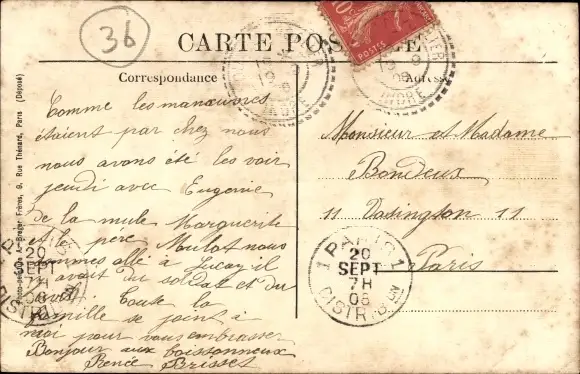 36
CARTE POSTALE
Correspondance
Adresse
Comme les manœuvres
étaient par chez nous
nous avons été les voir
jeudi avec Eugenie
de la mule Marguerite
et le père Moulot nous
sommes allé à Luçay il
y avait du soldat et du
Toute la
famille se joint à
moi pour vous embrasser
Bonjour aux boissonneux
Renée Brisset
Monsieur et Madame
Bondeux
11 11
Paris
PARIS 1
20
SEPT
7H
08
DISTRIB ON
20
SEPT
7H
08
DISTRIB
INDRE
INDRE
POSTES
Breger Frères, 9, Rue Thénard, Paris (Déposé)